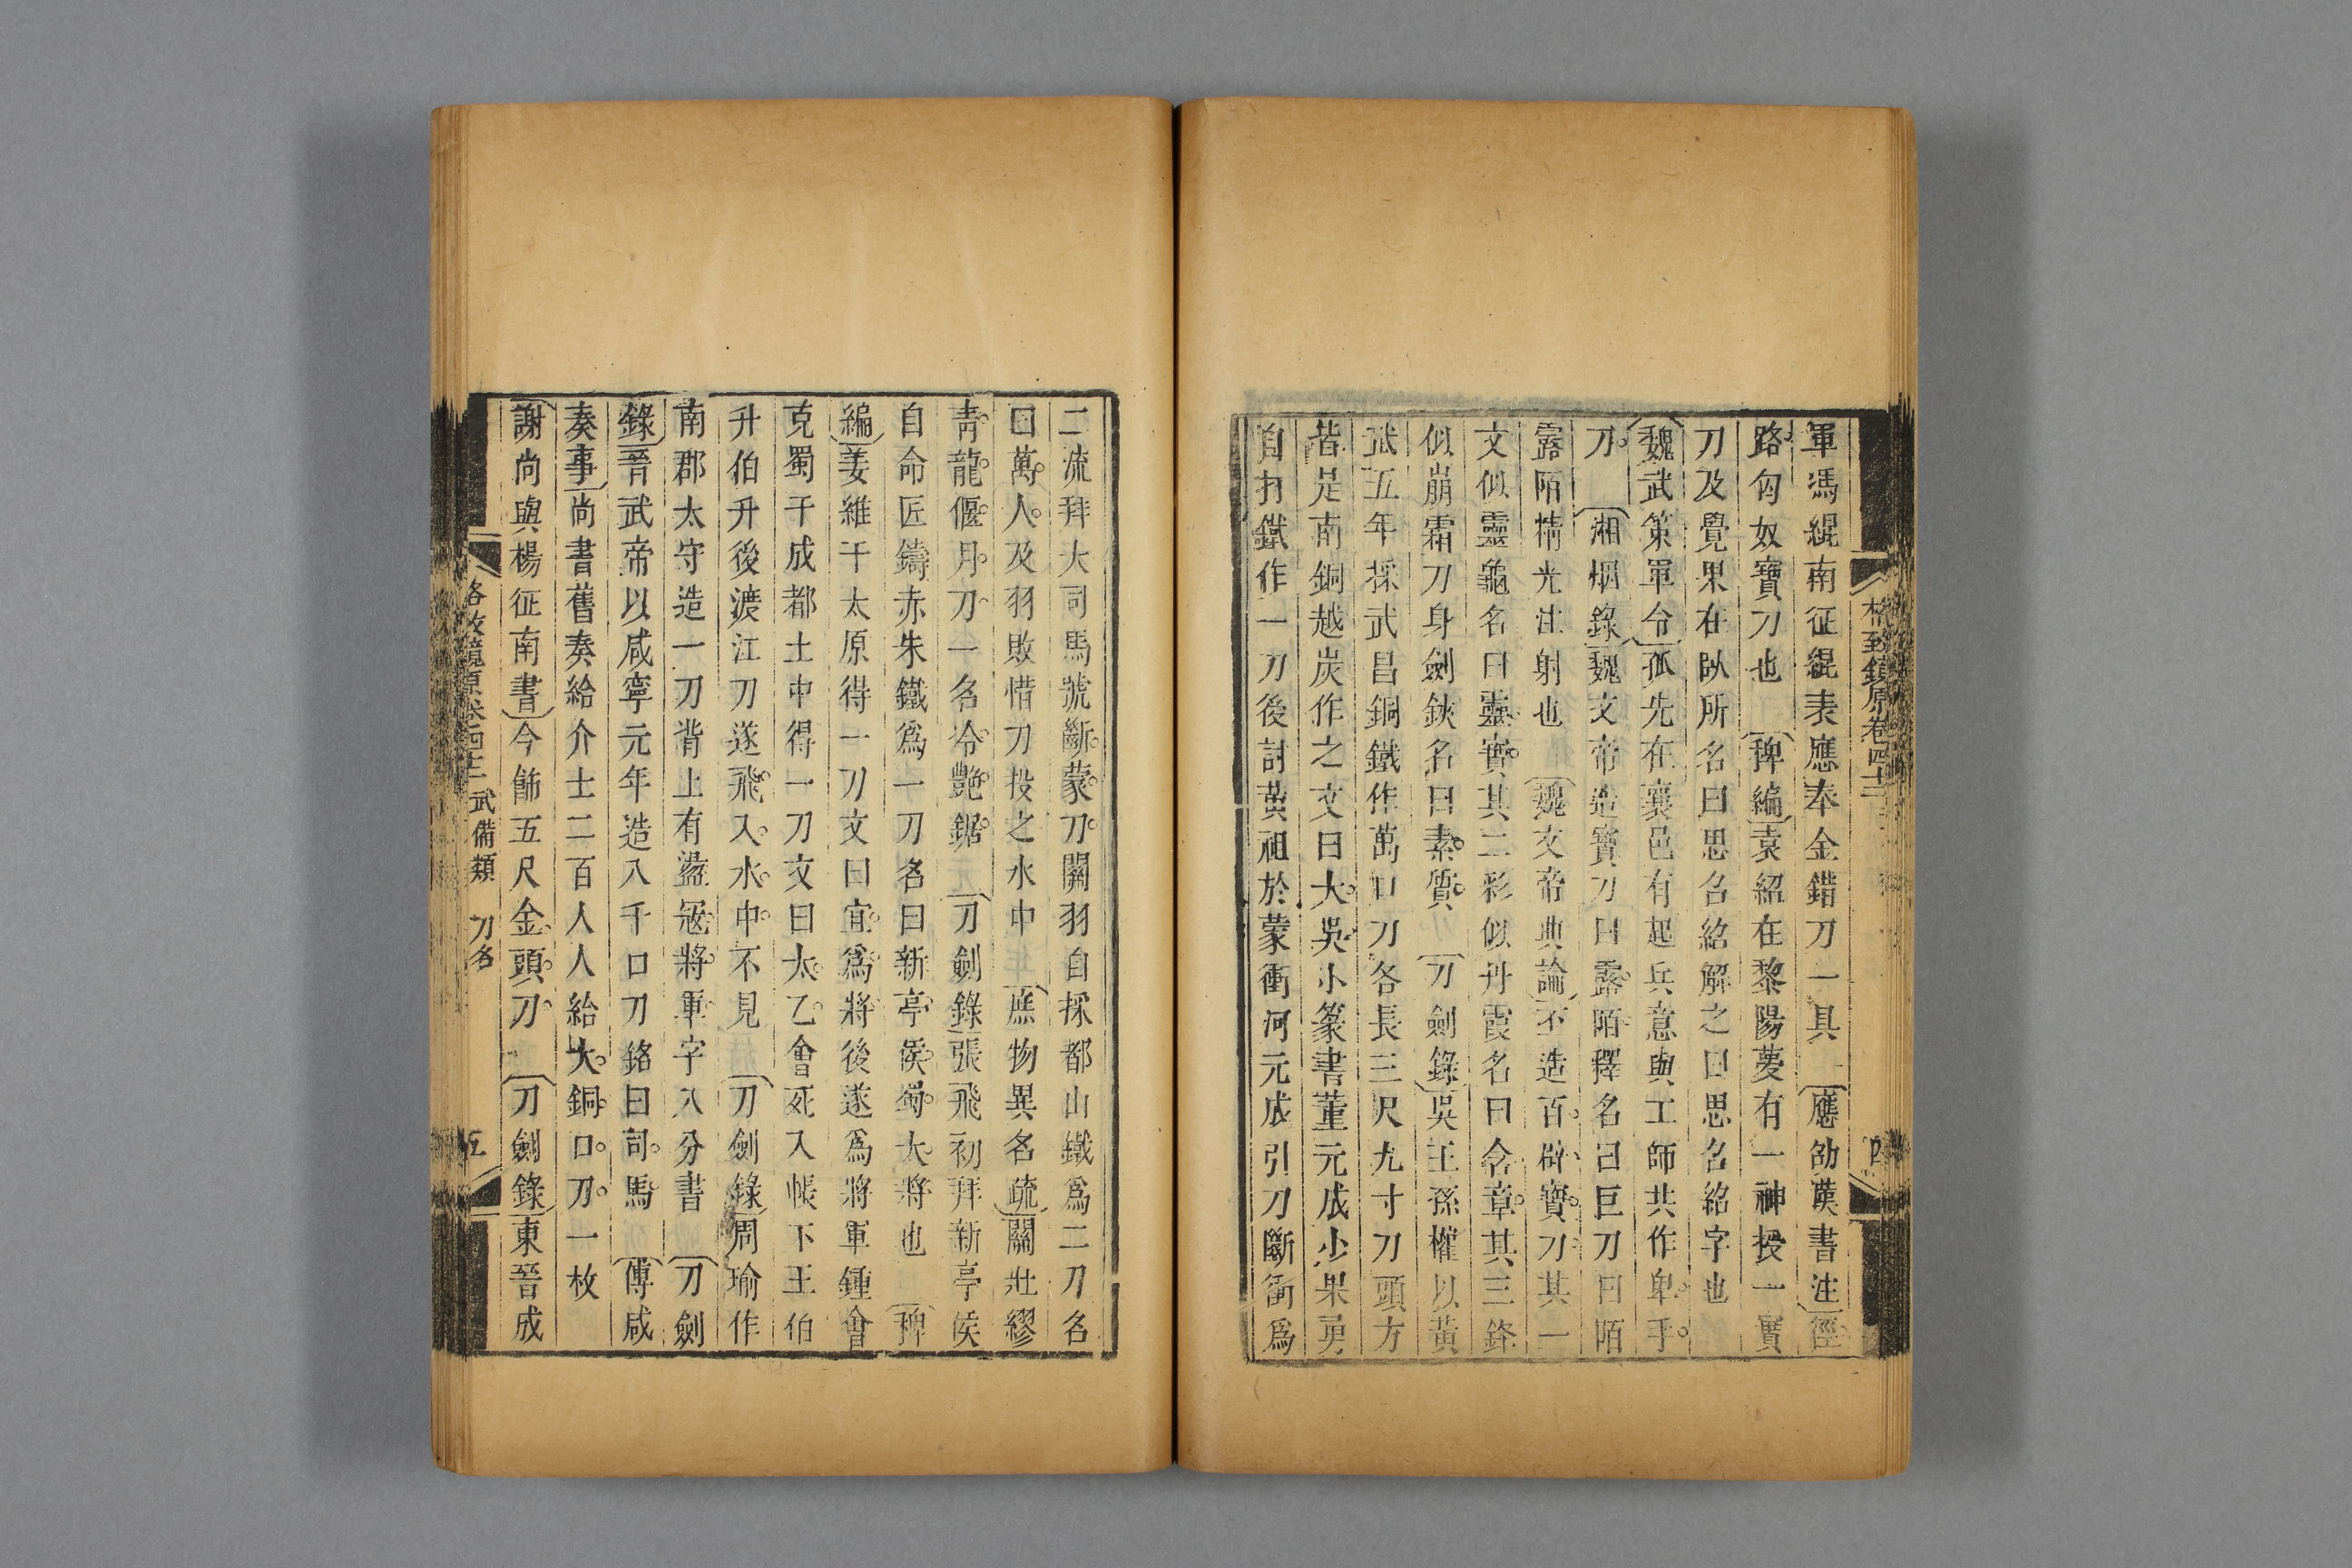 格致鏡原卷四十二
四
軍馮緄南征緄表應奉金錯刀一具 應劭漢書注徑
路匈奴寶刀也 稗編袁紹在黎陽夢有一神授一寶
刀及覺果在臥所名曰思召紹解之曰思名紹字也
魏武策軍令孤先在襄邑有起兵意與工師共作卑手
刀 湘烟錄魏文帝造寶刀曰露陌釋名曰巨刀曰陌
露陌精光注射也 魏文帝典論丕造百辟寶刀其一
文似靈龜名曰靈寶其二彩似丹霞名曰含章其三鋒
似崩霜刀身劍鋏名曰素質 刀劍錄吳王孫權以黃
武五年採武昌銅鐵作萬口刀各長三尺九寸刀頭方
皆是南銅越炭作之文曰大吳小篆書董元成少果勇
自打鐵作一刀後討黃祖於蒙衝河元成引刀斷衝爲
二流拜大司馬號斷蒙刀關羽自採都山鐵爲二刀名
曰萬人及羽敗惜刀投之水中 庶物異名疏關壯繆
青龍偃月刀一名冷艷鋸 刀劍錄張飛初拜新亭侯
自命匠鑄赤朱鐵爲一刀名曰新亭侯蜀大將也 稗
編姜維于太原得一刀文曰宜爲將後遂爲將軍鍾會
克蜀于成都土中得一刀文曰太乙會死入帳下王伯
升伯升後渡江刀遂飛入水中不見 刀劍錄周瑜作
南郡太守造一刀背上有盪冦將軍字八分書 刀劍
錄晉武帝以咸寧元年造八千口刀銘曰司馬 傅咸
奏事尚書舊奏給介士二百人人給大銅口刀一枚
謝尚與楊征南書今餙五尺金頭刀 刀劍錄東晉成
格致鏡原卷四十二 武備類 刀名
五